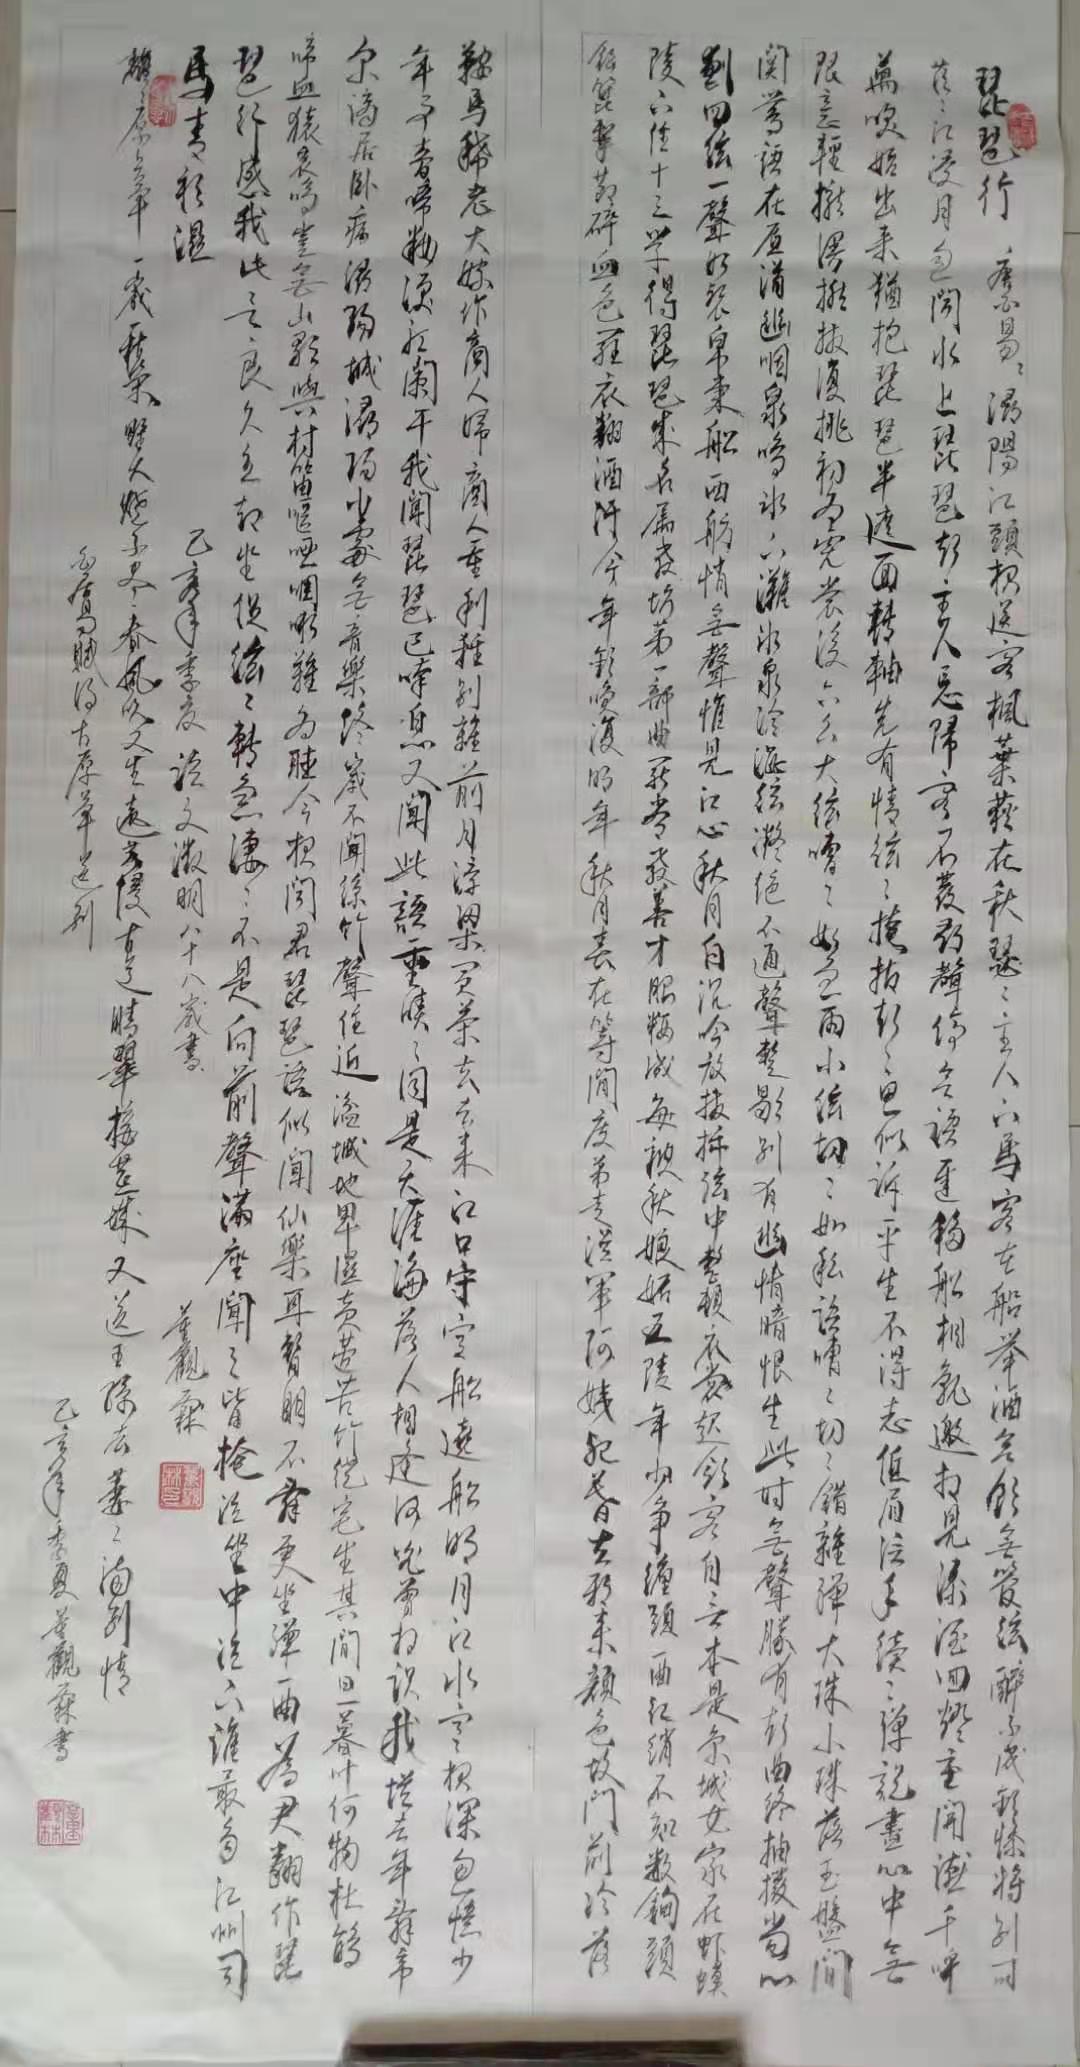 琵琶行 唐白居易 潯陽江頭夜送客楓葉荻花秋瑟々主人下馬客在船舉酒欲飲無管弦醉不成歡慘將別別時
茫々江浸月忽聞水上琵琶聲主人忘歸客不發尋聲暗問彈者誰琵琶聲停欲語遲移船相近邀相見添酒回燈重開宴千呼
萬喚始出來猶抱琵琶半遮面轉軸先有情弦々掩抑聲々思似訴平生不得志低眉信手續々彈說盡心中無
限意輕攏慢撚抹復挑初為霓裳後六么大弦嘈々如急雨小弦切々如私語嘈々切々錯雜彈大珠小珠落玉盤間
關鶯語花底滑幽咽泉鳴冰下灘冰泉冷澀弦凝絕不通聲暫歇別有幽情暗恨生此時無聲勝有聲曲終抽撥當心
劃四弦一聲如裂帛東船西舫悄無聲惟見江心秋月白沉吟放撥插弦中整頓衣裳起斂容自言本是京城女家在蝦蟆
陵下住十三學得琵琶成名屬教坊第一部曲罷常教善才服妝成每被秋娘妬五陵年少爭纏頭一曲紅綃不知數鈿頭
銀篦擊節碎血色羅裙翻酒污今年歡笑復明年秋月春風等閒度弟走從軍阿姨死暮去朝來顏色故門前冷落
鞍馬稀老大嫁作商人婦商人重利輕別離前月浮梁買茶去去來江口守空船遶船明月江水寒夜深忽憶少
年事夢啼妝淚紅闌干我聞琵琶已嘆息又聞此語重唧々同是天涯淪落人相逢何必曾相識我從去年辭帝
京謫居臥病潯陽城潯陽小處無音樂終歲不聞絲竹聲住近湓城地卑濕黃蘆苦竹繞宅生其間旦暮聞何物杜鵑
啼血猿哀鳴豈無山歌與村笛嘔啞嘲哳難為聽今夜聞君琵琶語似聞仙樂耳暫明不辭更坐彈一曲為君翻作琵
琶行感我此言良久立卻坐促弦々轉急淒々不是向前聲滿座聞之皆掩泣坐中泣下誰最多江州司
馬青衫濕
乙亥年季夏 臨文徵明八十八歲書 董觀霖
離々原上草一歲一枯榮野火燒不盡春風吹又生遠芳侵古道晴翠接荒城又送王孫去萋々滿別情
白居易賦得古原草送別
乙亥年季夏董觀霖書